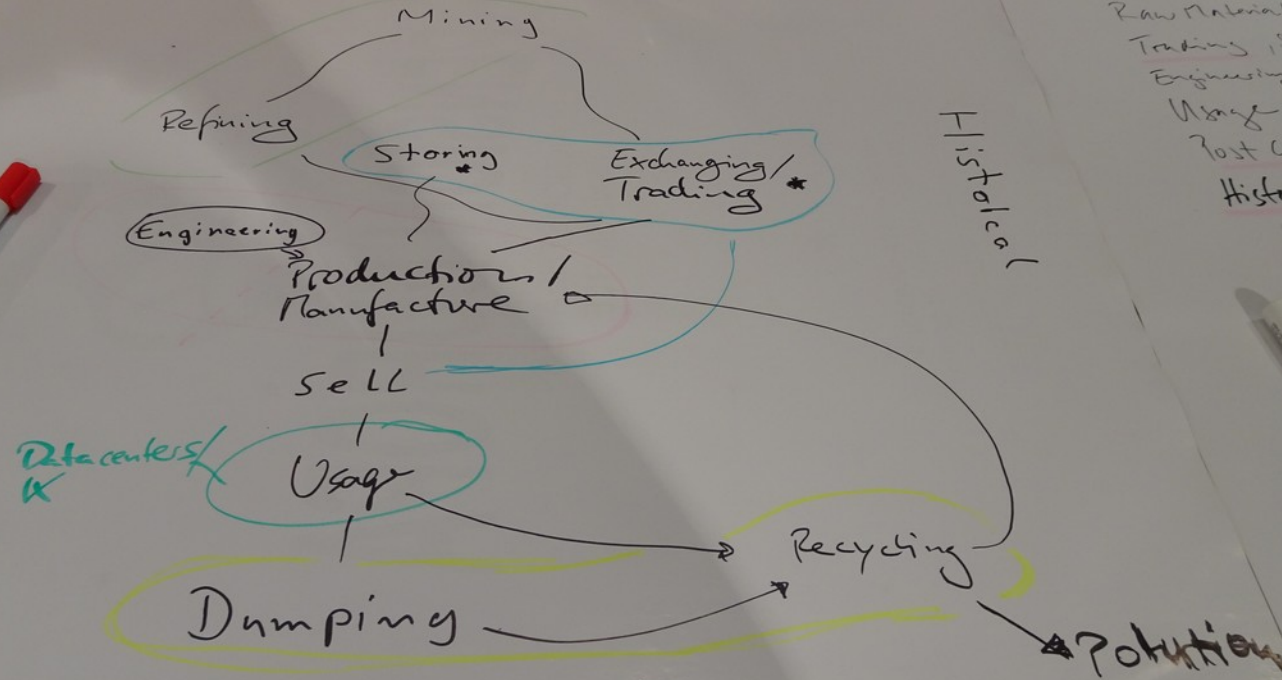 Mining
Refining
Storing *
Exchanging/
Trading *
Engineering
Production/
Manufacture
Sell
Datacenters/
Usage
Dumping
Recycling
Polution
Histolcal
Raw Materia
Trading
Engineering
Usage
Post C
Histo